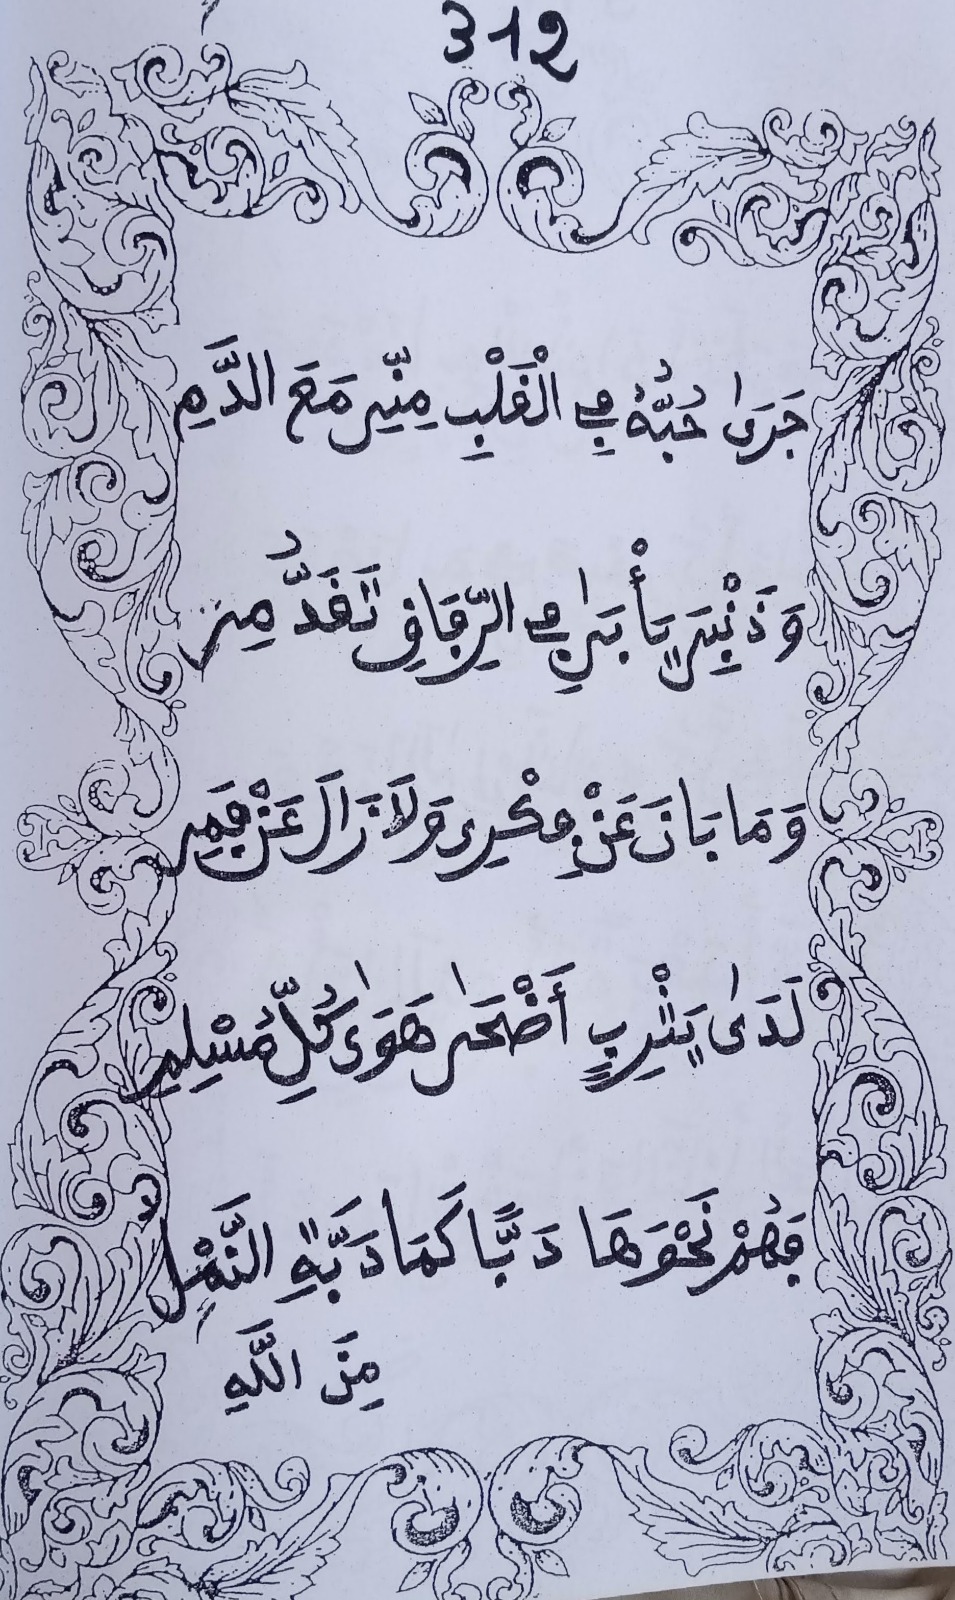 312
جَرَىٰ حُبُّهُ فِي الْقَلْبِ مِنِّي مَعَ الدَّمِ
وَذَنْبِي يَأْبَىٰ فِي الرِّفَاقِ تَقَدُّمِي
وَمَا بَانَ عَنْ فِكْرِي وَلَا زَالَ عَنْ فَمِي
لَدَىٰ يَثْرِبٍ أَضْحَىٰ هَوَىٰ كُلِّ مُسْلِمِ
فَهُمْ نَحْوَهَا دَبًّا كَمَا دَبَّهُ النَّمْلُ
مِنَ اللَّهِ